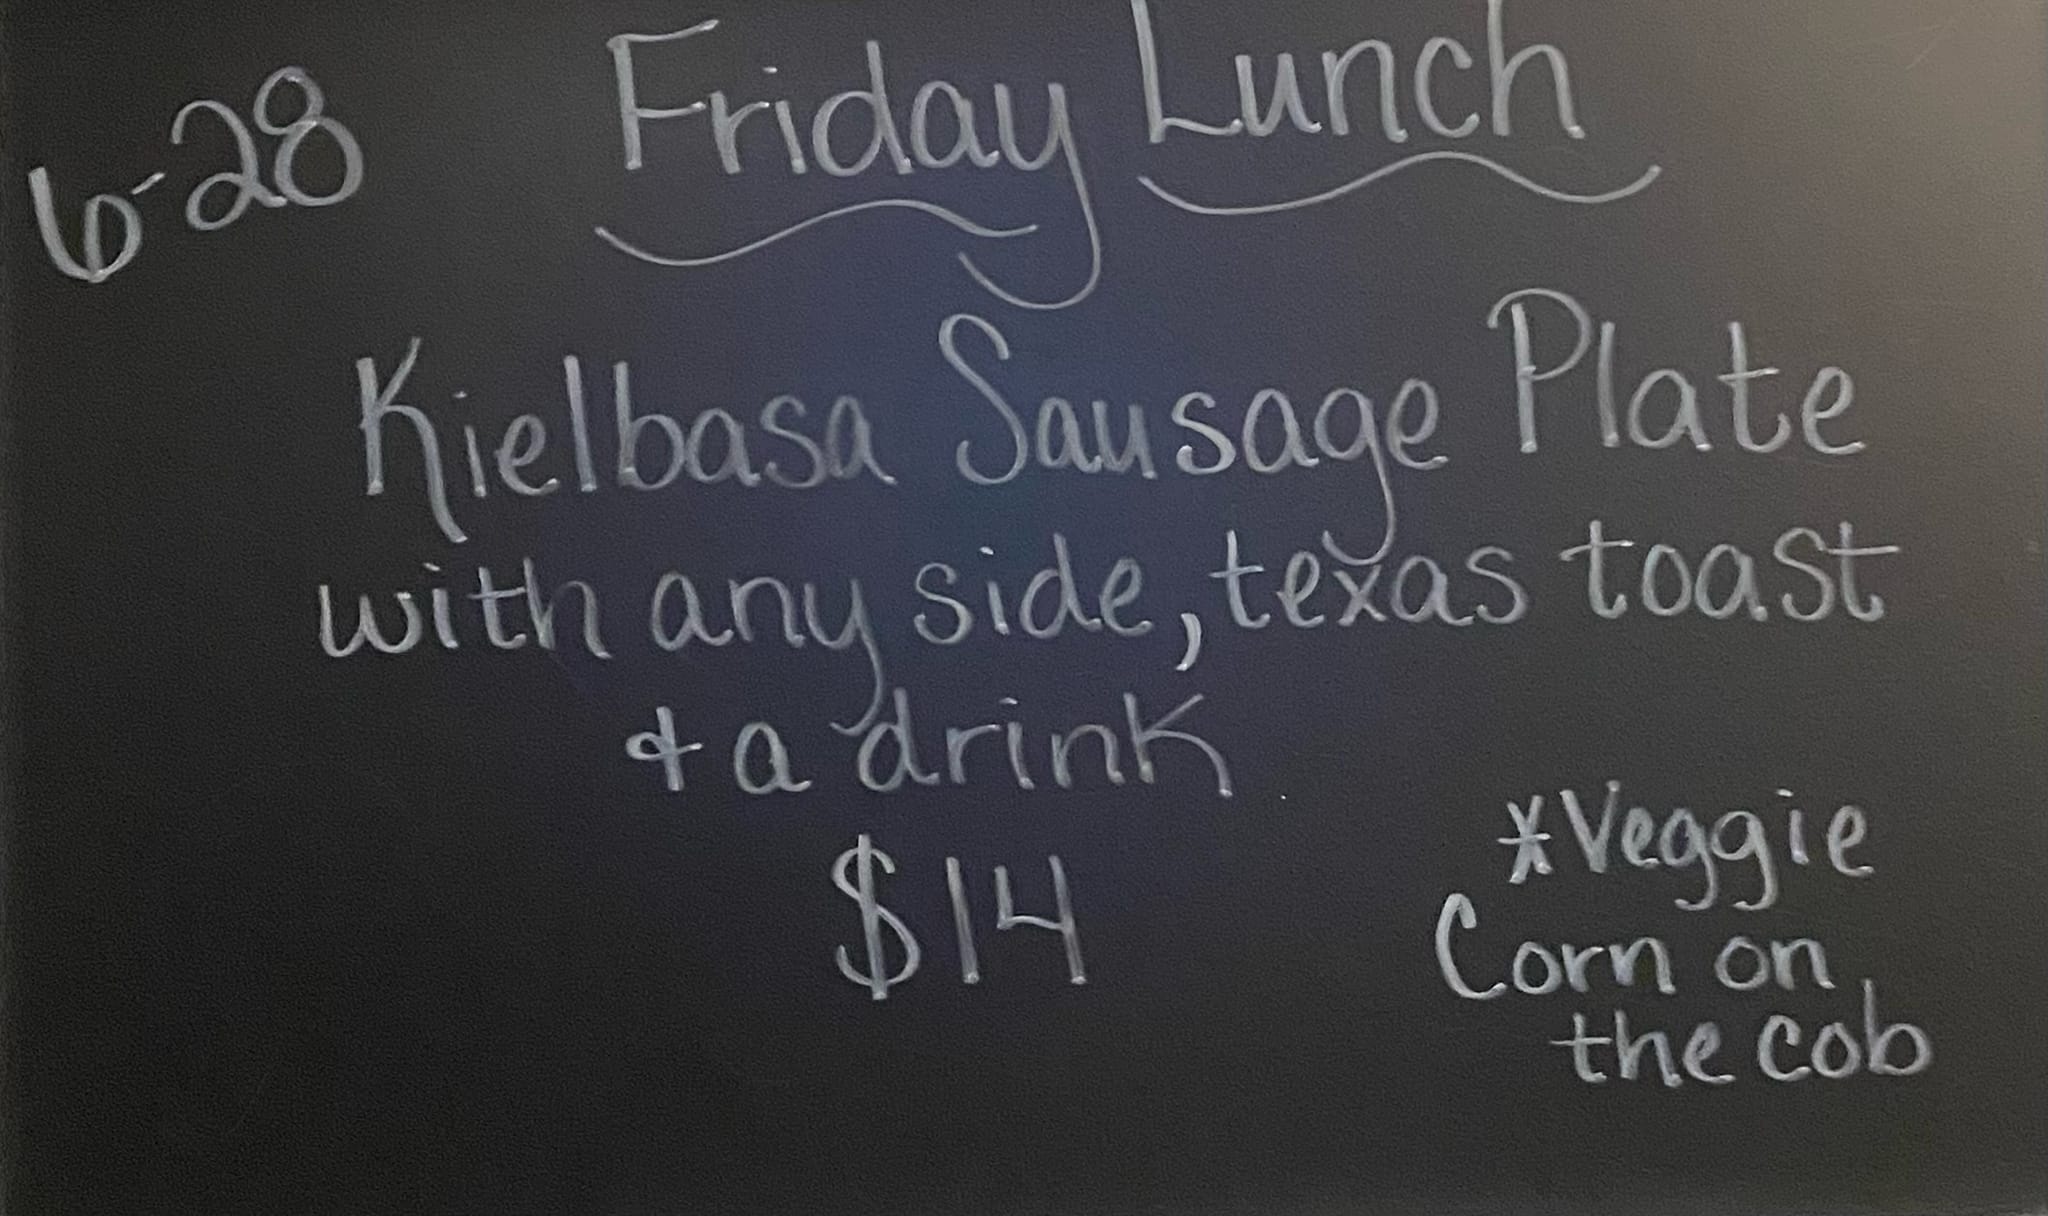 6-28
Friday Lunch
Kielbasa Sausage Plate
with any side, texas toast
& a drink
$14
*Veggie
Corn on
the cob